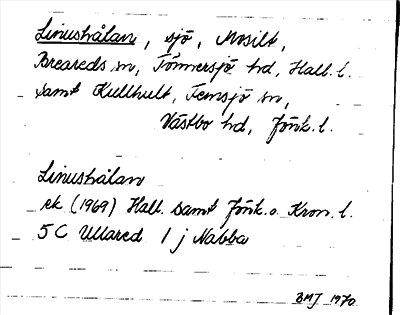 Linushålan, sjö, Mosilt,
Breareds sn, Tönnersjö hd, Hall. l.
samt Kullhult, Femsjö sn,
Västbo hd, Jönk. l.
Linushålan
ek (1969) Hall. samt Jönk. o. Kron. l.
5 C Ullared 1 j Nabba
BMJ 1970